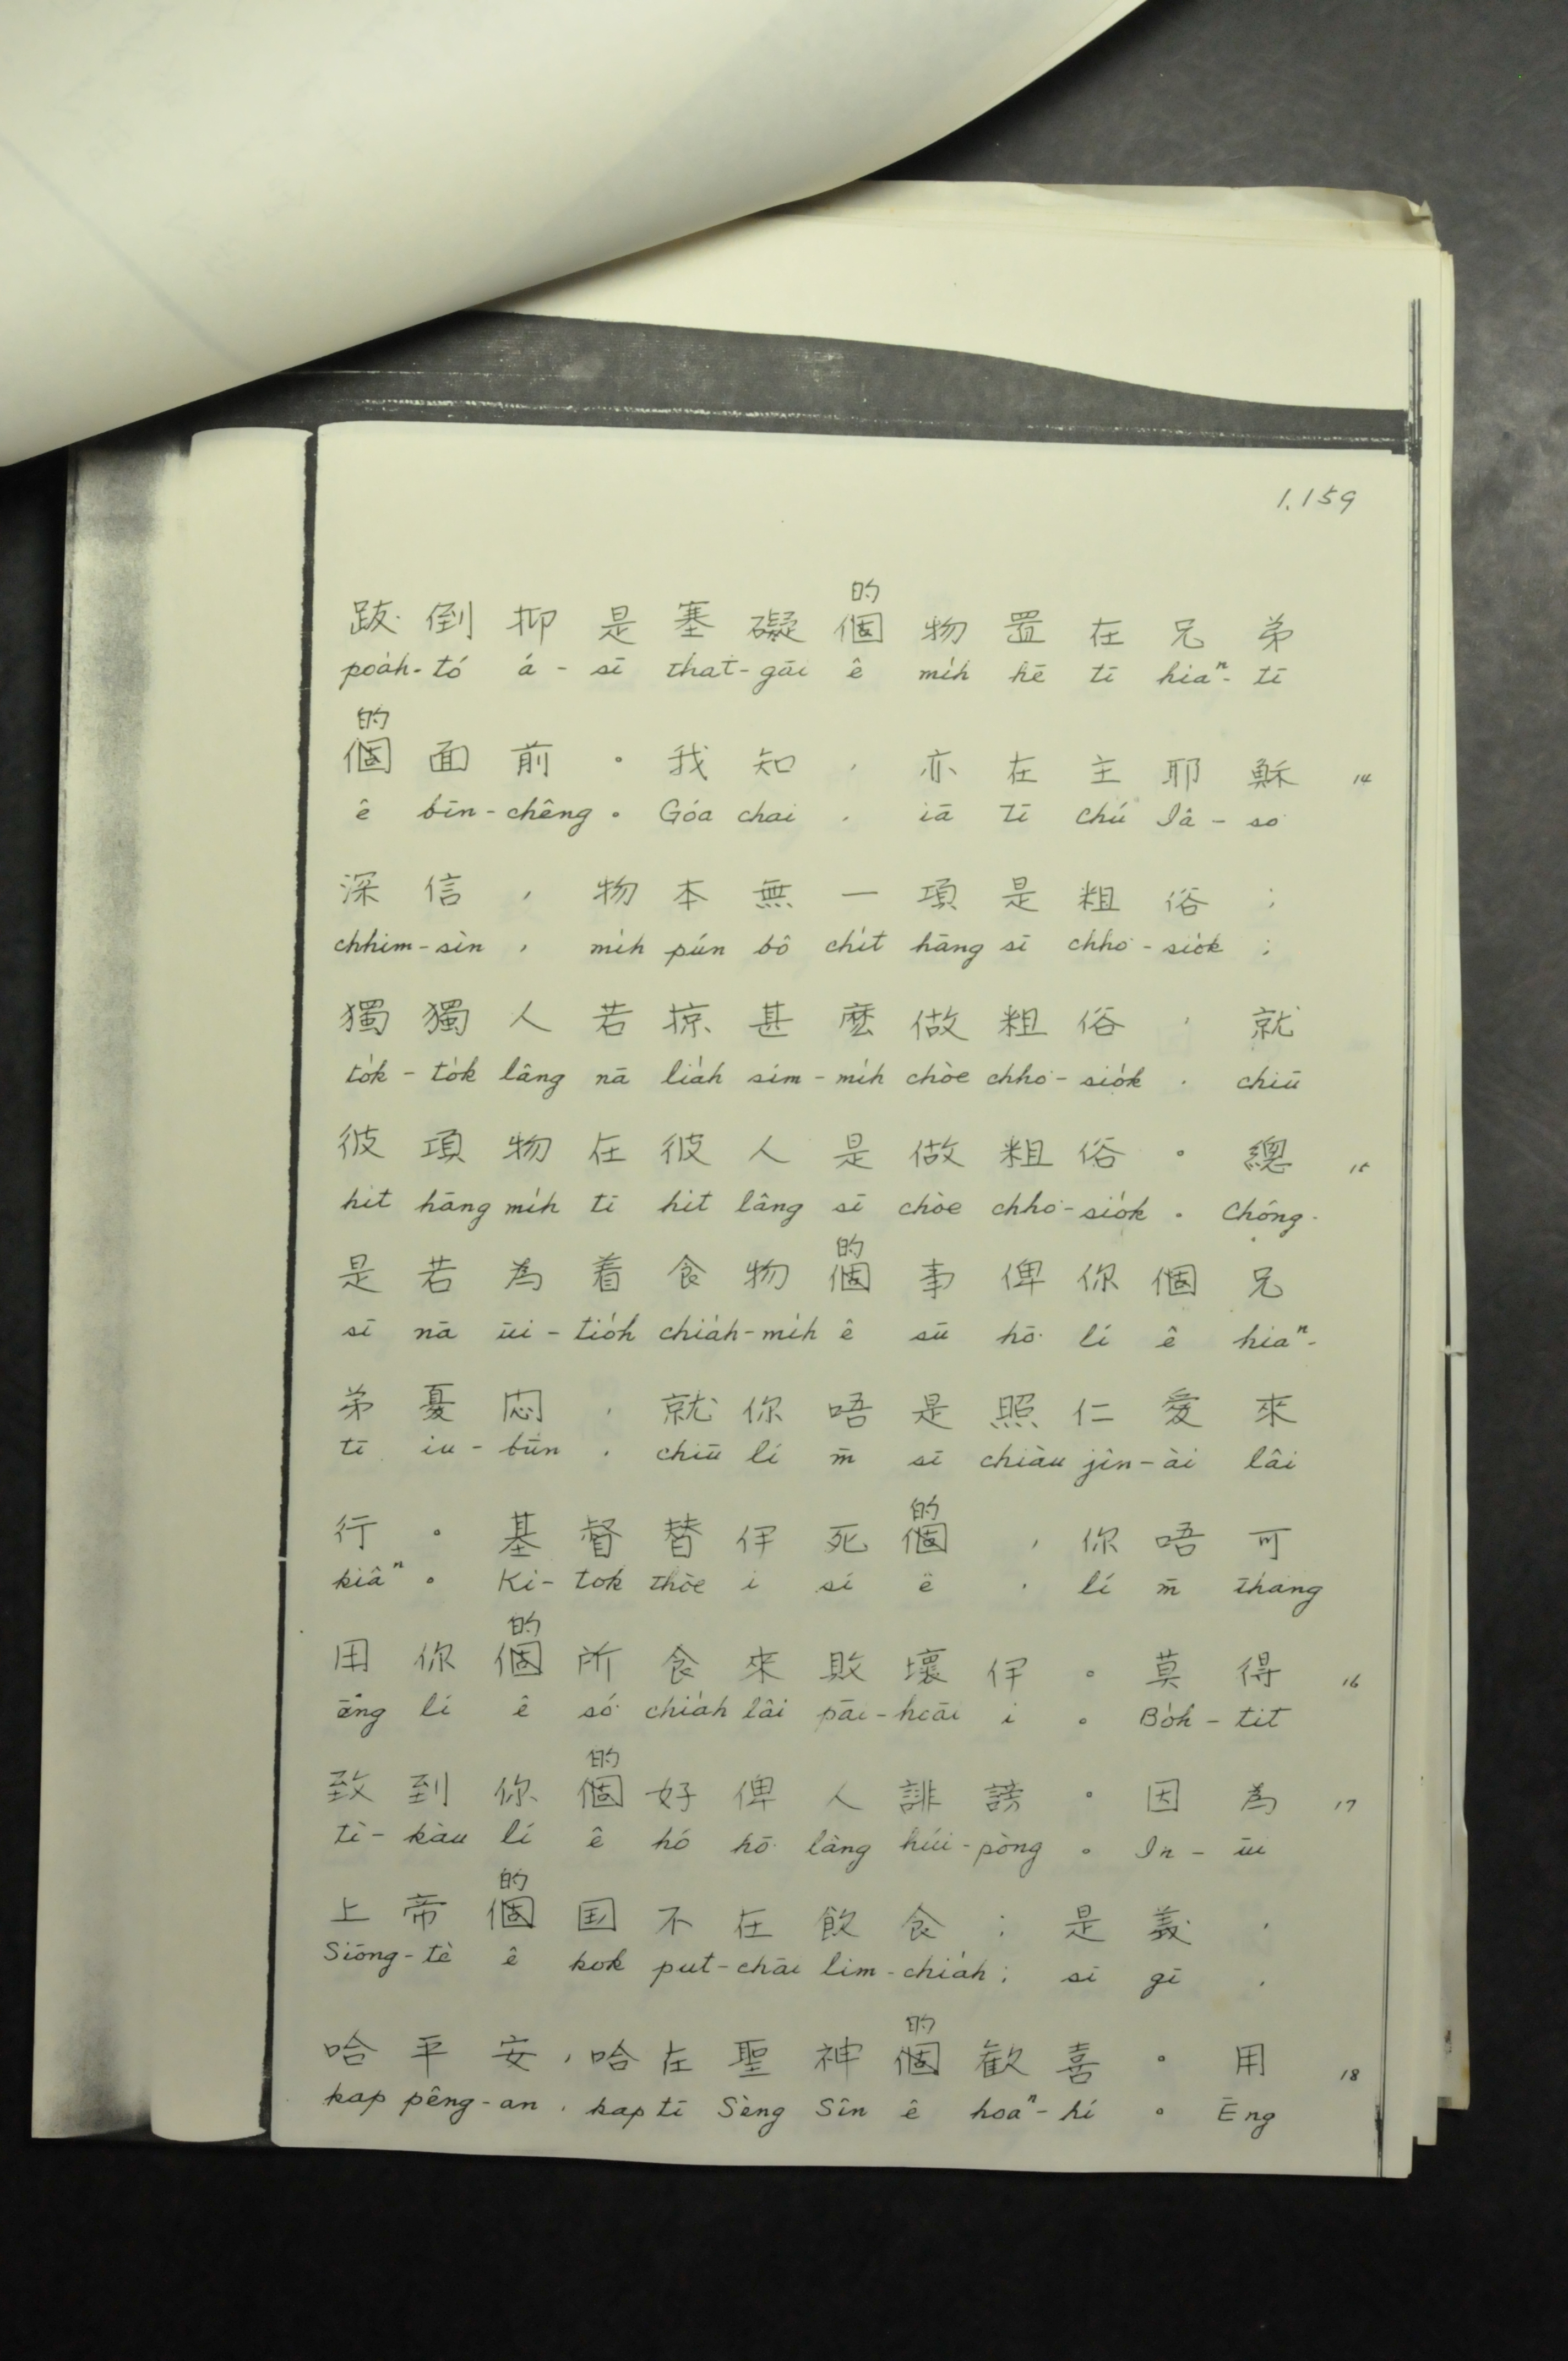 1.159
的
跋倒抑是塞礙個物置在兄弟
poa̍h-tó á-sī that-gāi ê mi̍h hē tī hiaⁿ-tī
的
個面前。我知，亦在主耶穌 14
ê bīn-chêng。Góa chai，iā tī Chú Iâ-so
深信，物本無一項是粗俗；
chhim-sìn，mi̍h pún bô chi̍t hāng sī chho͘-sio̍k；
獨獨人若掠甚麼做粗俗，就
to̍k-to̍k lâng nā lia̍h sím-mi̍h chòe chho͘-sio̍k，chiū
彼項物在彼人是做粗俗。總 15
hit hāng mi̍h tī hit lâng sī chòe chho͘-sio̍k。Chóng-
的
是若為着食物個事俾你個兄
sī nā ūi-tio̍h chia̍h-mi̍h ê sū hō͘ lí ê hiaⁿ-
弟憂悶，就你唔是照仁愛來
tī iu-būn，chiū lí m̄ sī chiàu jîn-ài lâi
的
行。基督替伊死個，你唔可
kiâⁿ。Ki-tok thòe i sí ê，lí m̄ thang
的
用你個所食來敗壞伊。莫得 16
ēng lí ê só͘ chia̍h lâi pāi-hoāi i。Bo̍h-tit
的
致到你個好俾人誹謗。因為 17
tì-kàu lí ê hó hō͘ lâng húi-pòng。In-ūi
的
上帝個国不在飲食；是義，
Siōng-tè ê kok put-chāi lim-chia̍h；sī gī，
的
哈平安，哈在聖神個歡喜。用 18
kap pêng-an，kap tī Sèng Sîn ê hoaⁿ-hí。Ēng